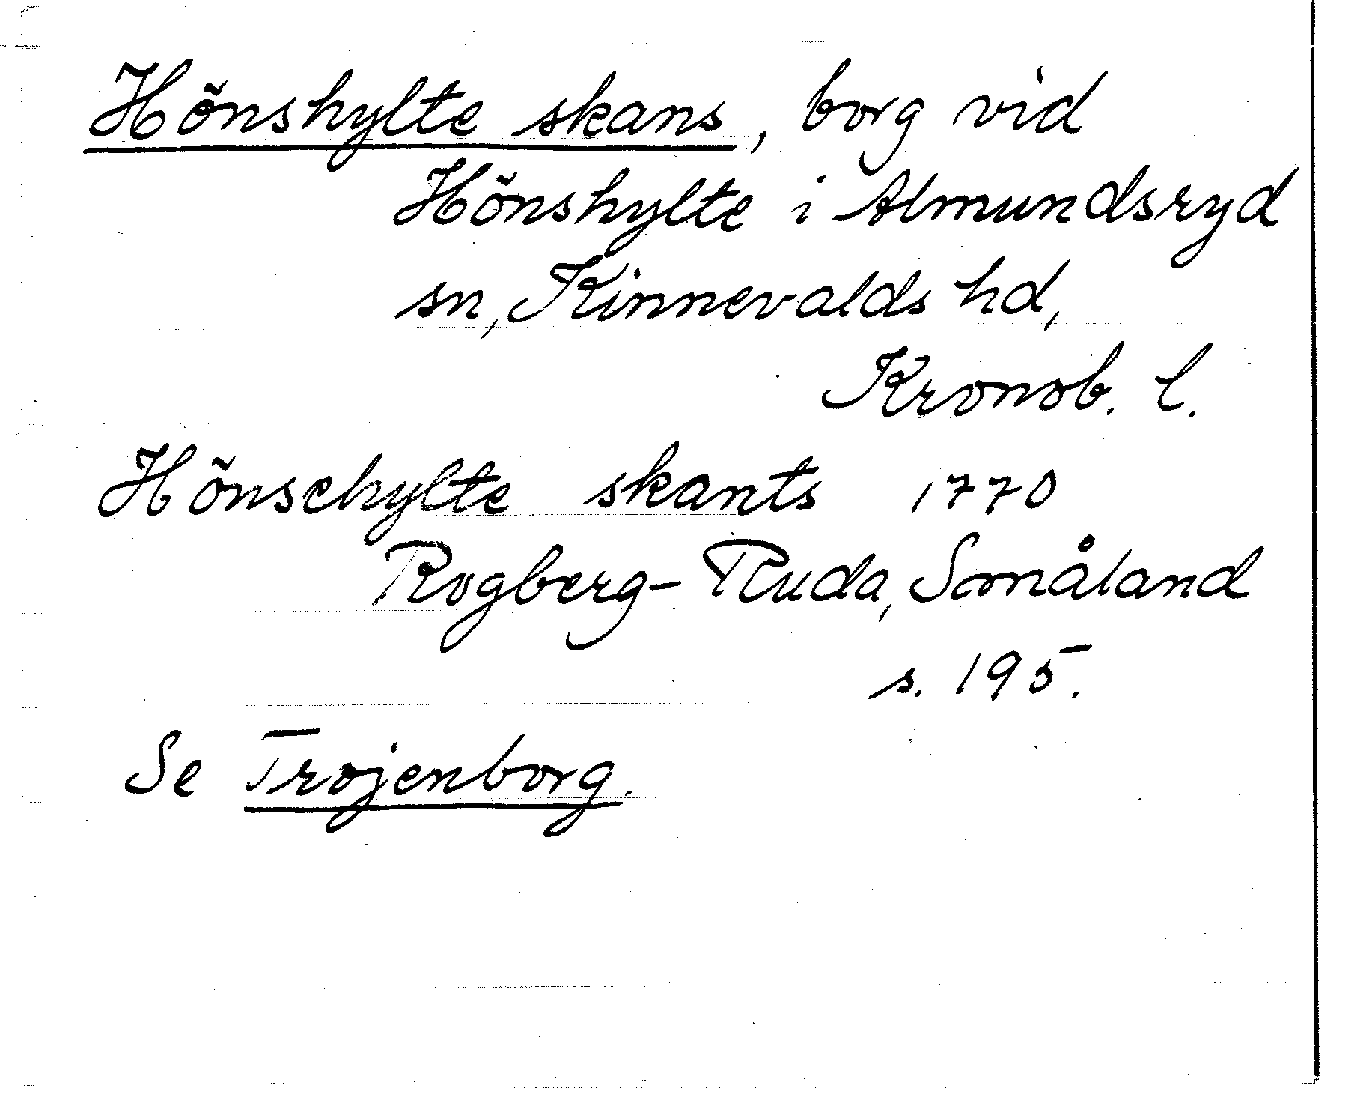 Hönshylte skans, borg vid
Hönshylte i Almundsryd
sn, Kinnevalds hd,
Kronob. l.
Hönsehylte skants 1770
Rogberg-Ruda, Småland
s. 195.
Se Trojenborg.